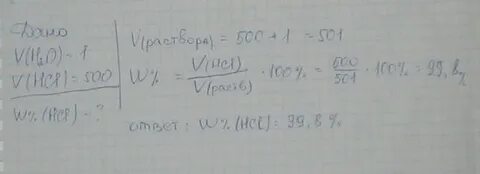 Дано
V(H₂O) = 1
V(HCl) = 500
W% (HCl) - ?
V(раствора) = 500 + 1 = 501
W% = V(HCl) / V(раств) · 100% = 500 / 501 · 100% = 99,8%
ответ: W% (HCl) = 99,8 %